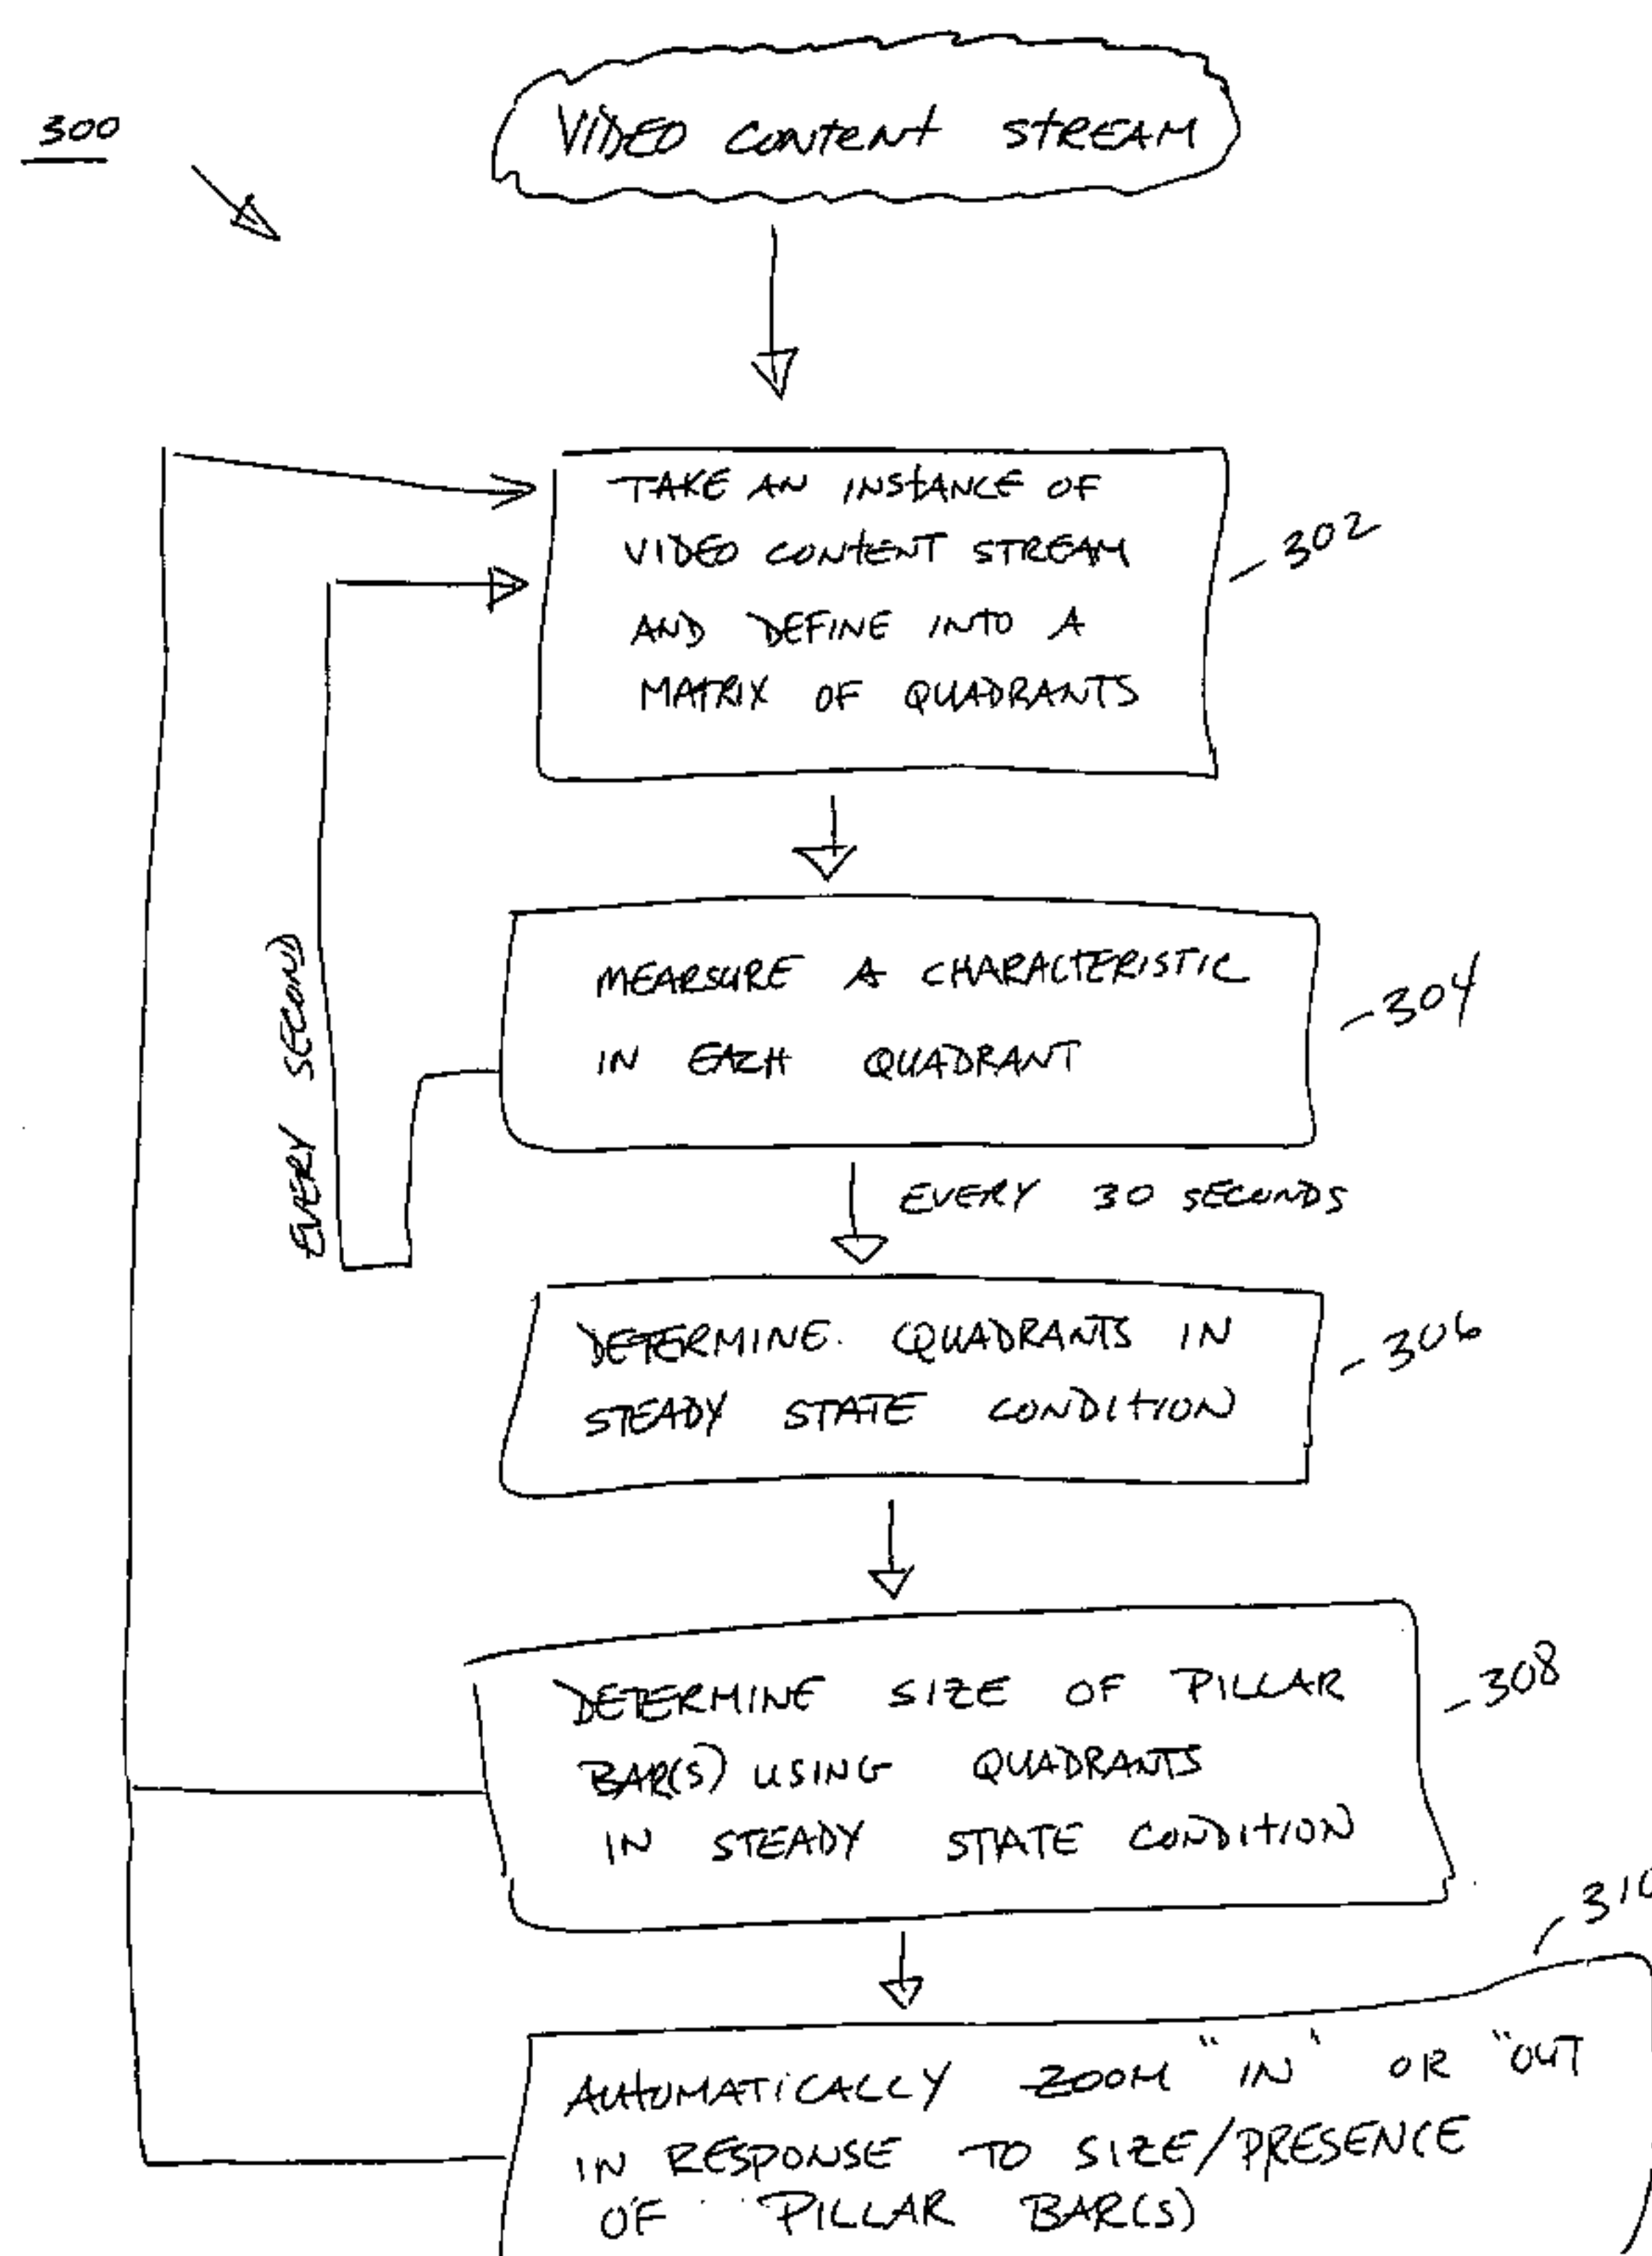 300
VIDEO CONTENT STREAM
TAKE AN INSTANCE OF
VIDEO CONTENT STREAM
AND DEFINE INTO A
MATRIX OF QUADRANTS
302
MEARSURE A CHARACTERISTIC
IN EACH QUADRANT
304
EVERY SECOND
EVERY 30 SECONDS
DETERMINE. QUADRANTS IN
STEADY STATE CONDITION
306
DETERMINE SIZE OF PILLAR
BAR(S) USING QUADRANTS
IN STEADY STATE CONDITION
308
310
AUTOMATICALLY ZOOM "IN" OR "OUT
IN RESPONSE TO SIZE/PRESENCE
OF PILLAR BAR(S)